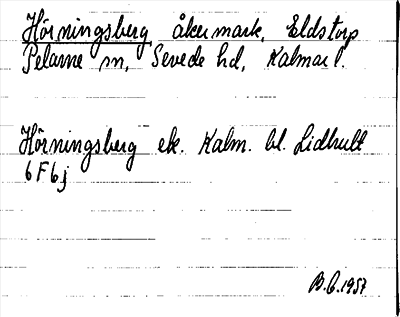 Hörningsberg åkermark, Eldstorp
Pelarne sn, Sevede hd, Kalmar l.
Hörningsberg ek. Kalm. bl. Lidhult
6F6j
B.G.1957